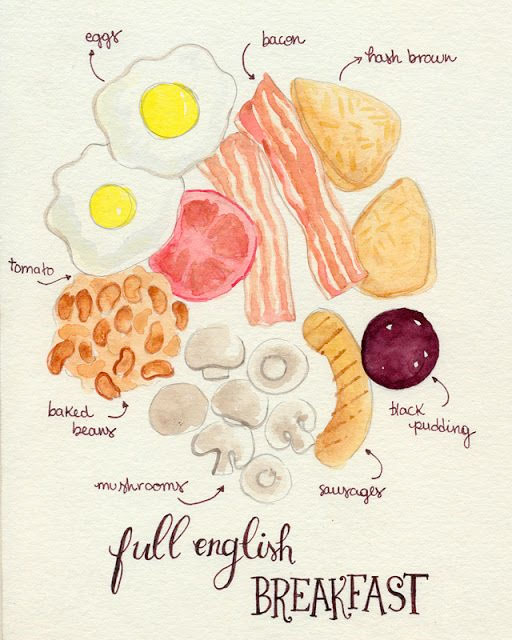 eggs
bacon
hash brown
tomato
baked
beans
black
pudding
mushrooms
sausages
full english
BREAKFAST